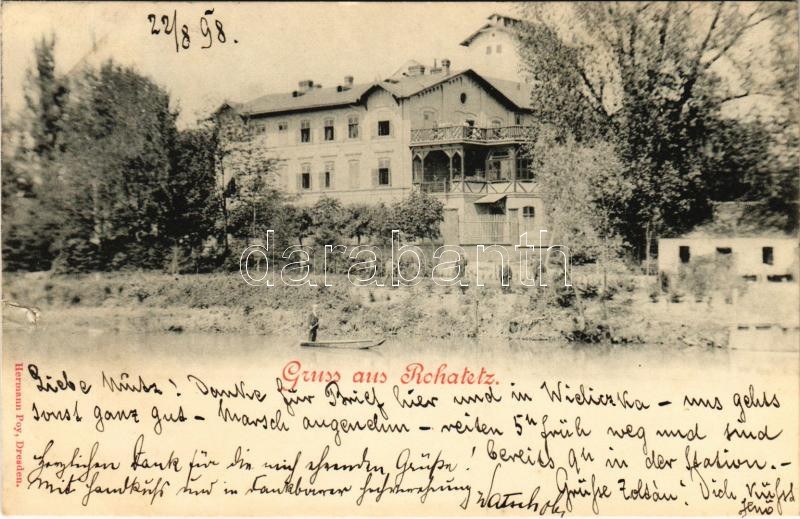 22/8 98.
darabanth
Gruss aus Rohatetz.
Hermann Poy, Dresden.
Liebe Mutz! Danke für Brief hier und in Wieliczka – uns gehts
sonst ganz gut – Marsch angenehm – reiten 5ʰ früh weg und sind
bereits 9ʰ in der Station. –
Herzlichen Dank für die mich ehrenden Grüße!
Mit Handkuß und in dankbarer Hochverehrung
Grüße Zoltán! Dich küßt
Jenö